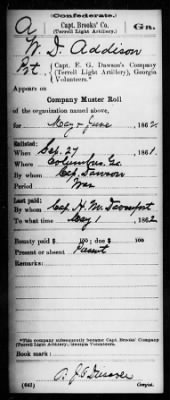 Confederate.
A Capt. Brooks' Co. Ga.
(Terrell Light Artillery.)
W. D. Addison
Pvt, Capt. E. G. Dawson's Company (Terrell Light Artillery), Georgia Volunteers.*
Appears on
Company Muster Roll
of the organization named above,
for May & June 1862.
Enlisted:
When Sep. 27 1861.
Where Columbus, Ga.
By whom Cap. Dawson
Period War
Last paid:
By whom Cap. H. M. Davenport
To what time May 1 1862
Bounty paid $ 100; due $ 100
Present or absent Present
Remarks:
*This company subsequently became Capt. Brooks' Company (Terrell Light Artillery), Georgia Volunteers.
Book mark:
(642) Copyist.